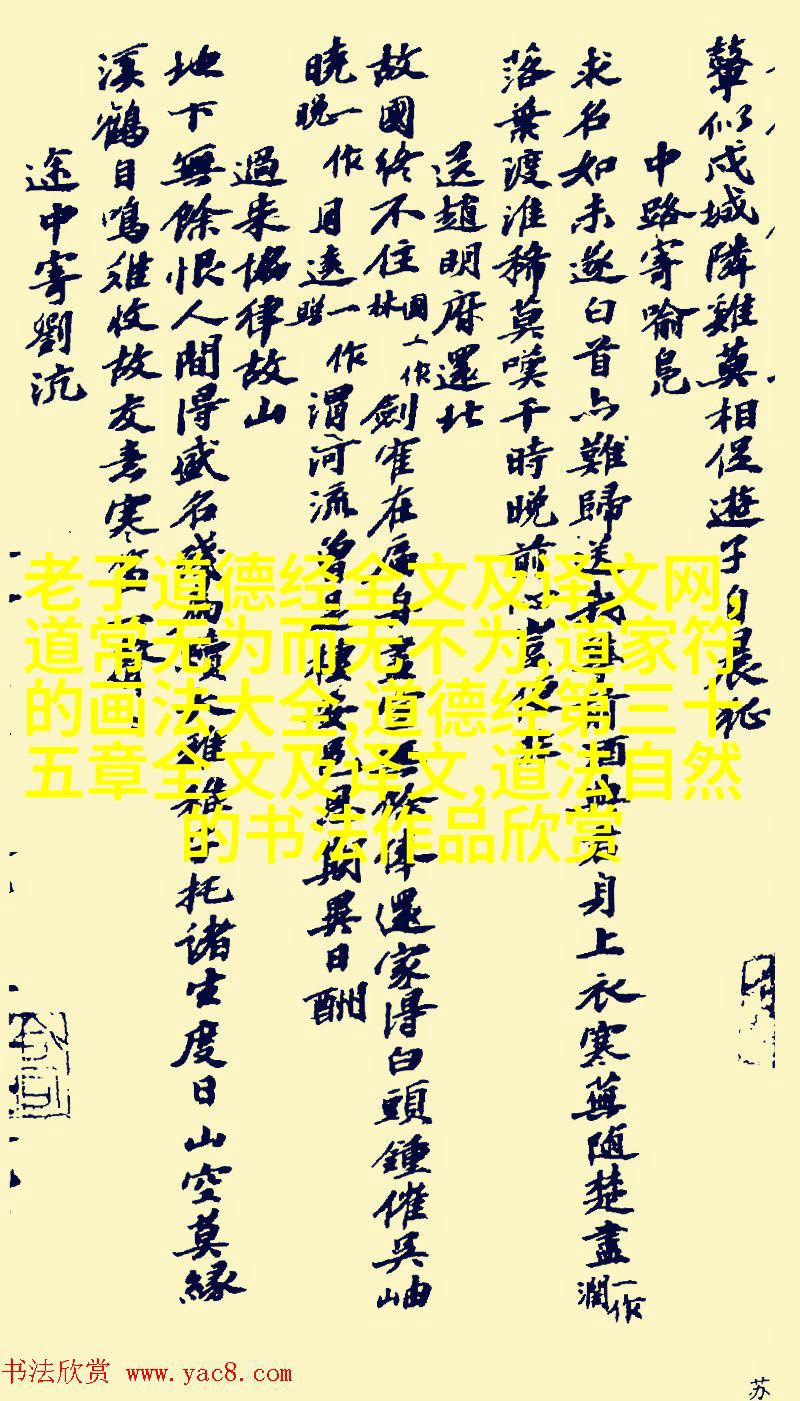 輦似戍城隣雞莫相促遊子自晨征
中路寄喻鳧
求名如未遂白首亦難歸送我
身上衣寒蕪随楚盡一作
潤
落葉渡淮稀莫嘆干時晚前
送趙明府還北
故國終不住
林
園一作
劍在
還家得白頭鍾催吳岫
曉一作
晚
月遠一作
渭河流曾是棲安邑恩期異日酬
過朱協律故山
地下無餘恨人間得盛名殘大雅稚子托諸生度日山空莫緣
溪鶴自鳴難收故友書寒
途中寄劉沆
老子道德经全文及译文网,
道常无为而无不为,道家符
的画法大全,道德经第三十
五章全文及译文,道法自然
的书法作品欣赏
书法欣赏 www.yac8.com
苏